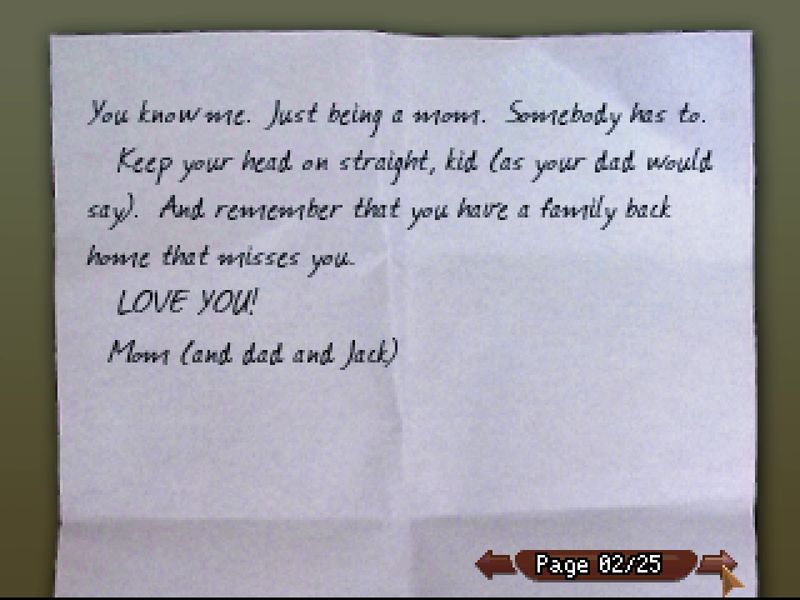 You know me. Just being a mom. Somebody has to.
Keep your head on straight, kid (as your dad would
say). And remember that you have a family back
home that misses you.
LOVE YOU!
Mom (and dad and Jack)
Page 02/25